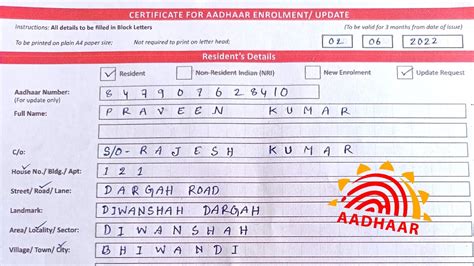 CERTIFICATE FOR AADHAAR ENROLMENT/ UPDATE
Instructions: All details to be filled in Block Letters
(To be valid for 3 months from date of issue)
To be printed on plain A4 paper size; Not required to print on letter head;
02 06 2022
Resident's Details
Resident Non-Resident Indian (NRI) New Enrolment Update Request
Aadhaar Number: 847907628410
(For update only)
Full Name: PRAVEEN KUMAR
C/o: S/O- RAJESH KUMAR
House No./ Bldg./ Apt: 121
Street/ Road/ Lane: DARGAH ROAD
Landmark: DIWANSHAH DARGAH
Area/ Locality/ Sector: DIWANSHAH
Village/ Town/ City: BHIWANDI
AADHAAR